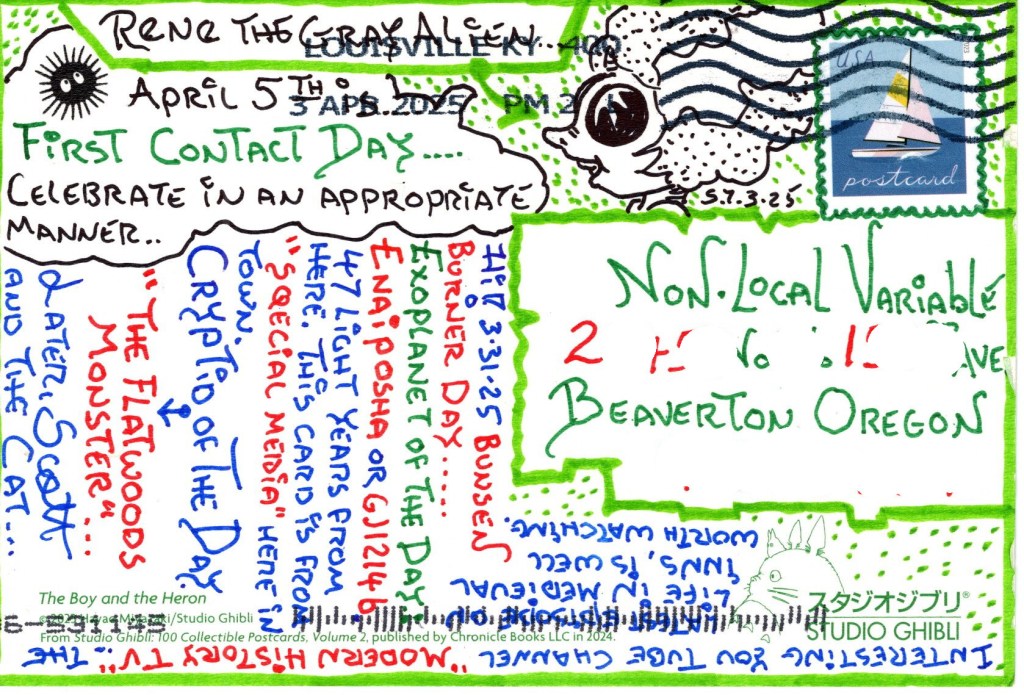 RENE THE GRAY ALIEN..
LOUISVILLE KY 400
APRIL 5TH is
3 APR 2025 PM
FIRST CONTACT DAY....
CELEBRATE IN AN APPROPRIATE
MANNER..
S.7.3.25
USA
postcard
NON-LOCAL VARIABLE
2
AVE
BEAVERTON OREGON
Hi? 3.31.25 BUNSEN
BURNER DAY.....
EXOPLANET OF THE DAY?
ENAIPOSHA OR GJ1214b
47 LIGHT YEARS FROM
HERE. THIS CARD IS FROM
"SQECIAL MEDIA" HERE IN
TOWN.
CRYPTID OF THE DAY.
"THE FLATWOODS
MONSTER"...
LATER, SCOTT
AND THE CAT...
INTERESTING YOU TUBE CHANNEL "MODERN HISTORY TV".. THE
LATEST EPISODE ON
LIFE IN MEDIEVAL
INNS, IS WELL
WORTH WATCHING.
The Boy and the Heron
© 2023 Hayao Miyazaki/Studio Ghibli
From Studio Ghibli: 100 Collectible Postcards, Volume 2, published by Chronicle Books LLC in 2024.
スタジオジブリ®
STUDIO GHIBLI